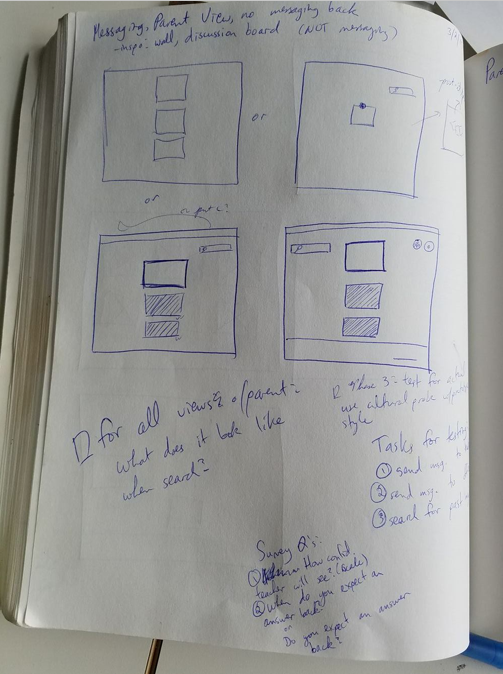 Messaging, Parent View, no messaging back
- inspo: wall, discussion board (NOT messaging)
or
or
for all views of parent =
what does it look like
when search?
phase 3 = test for
use cultural probe
style
Tasks for testing
① send msg. to
② send msg. to
③ search for post
Survey Q's:
① How confid.
teacher will see? (scale)
② When do you expect an
answer back?
or
Do you expect an answer
back?
Pare